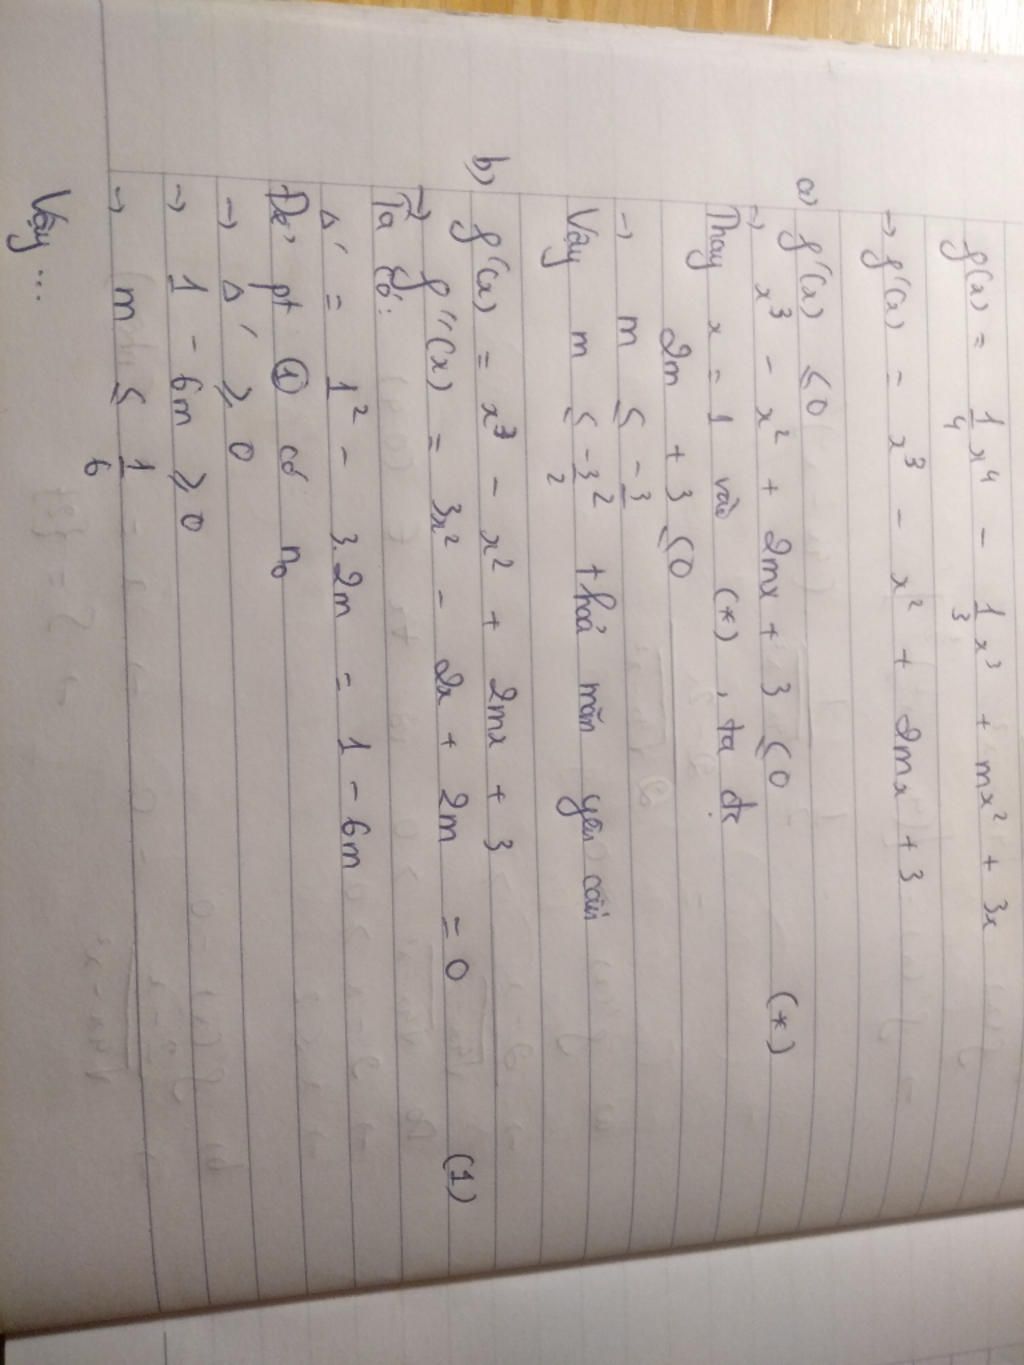 f(x) = 1/4 x⁴ - 1/3 x³ + mx² + 3x
→ f'(x) = x³ - x² + 2mx + 3
a) f'(x) ≤ 0
→ x³ - x² + 2mx + 3 ≤ 0 (*)
Thay x = 1 vào (*), ta đc
2m + 3 ≤ 0
→ m ≤ -3/2
Vậy m ≤ -3/2 thoả mãn yêu cầu
b) f'(x) = x³ - x² + 2mx + 3
→ f''(x) = 3x² - 2x + 2m = 0 (1)
Ta có:
Δ' = 1² - 3.2m = 1 - 6m
Để pt ① có n₀
→ Δ' ≥ 0
→ 1 - 6m ≥ 0
→ m ≤ 1/6
Vậy ...